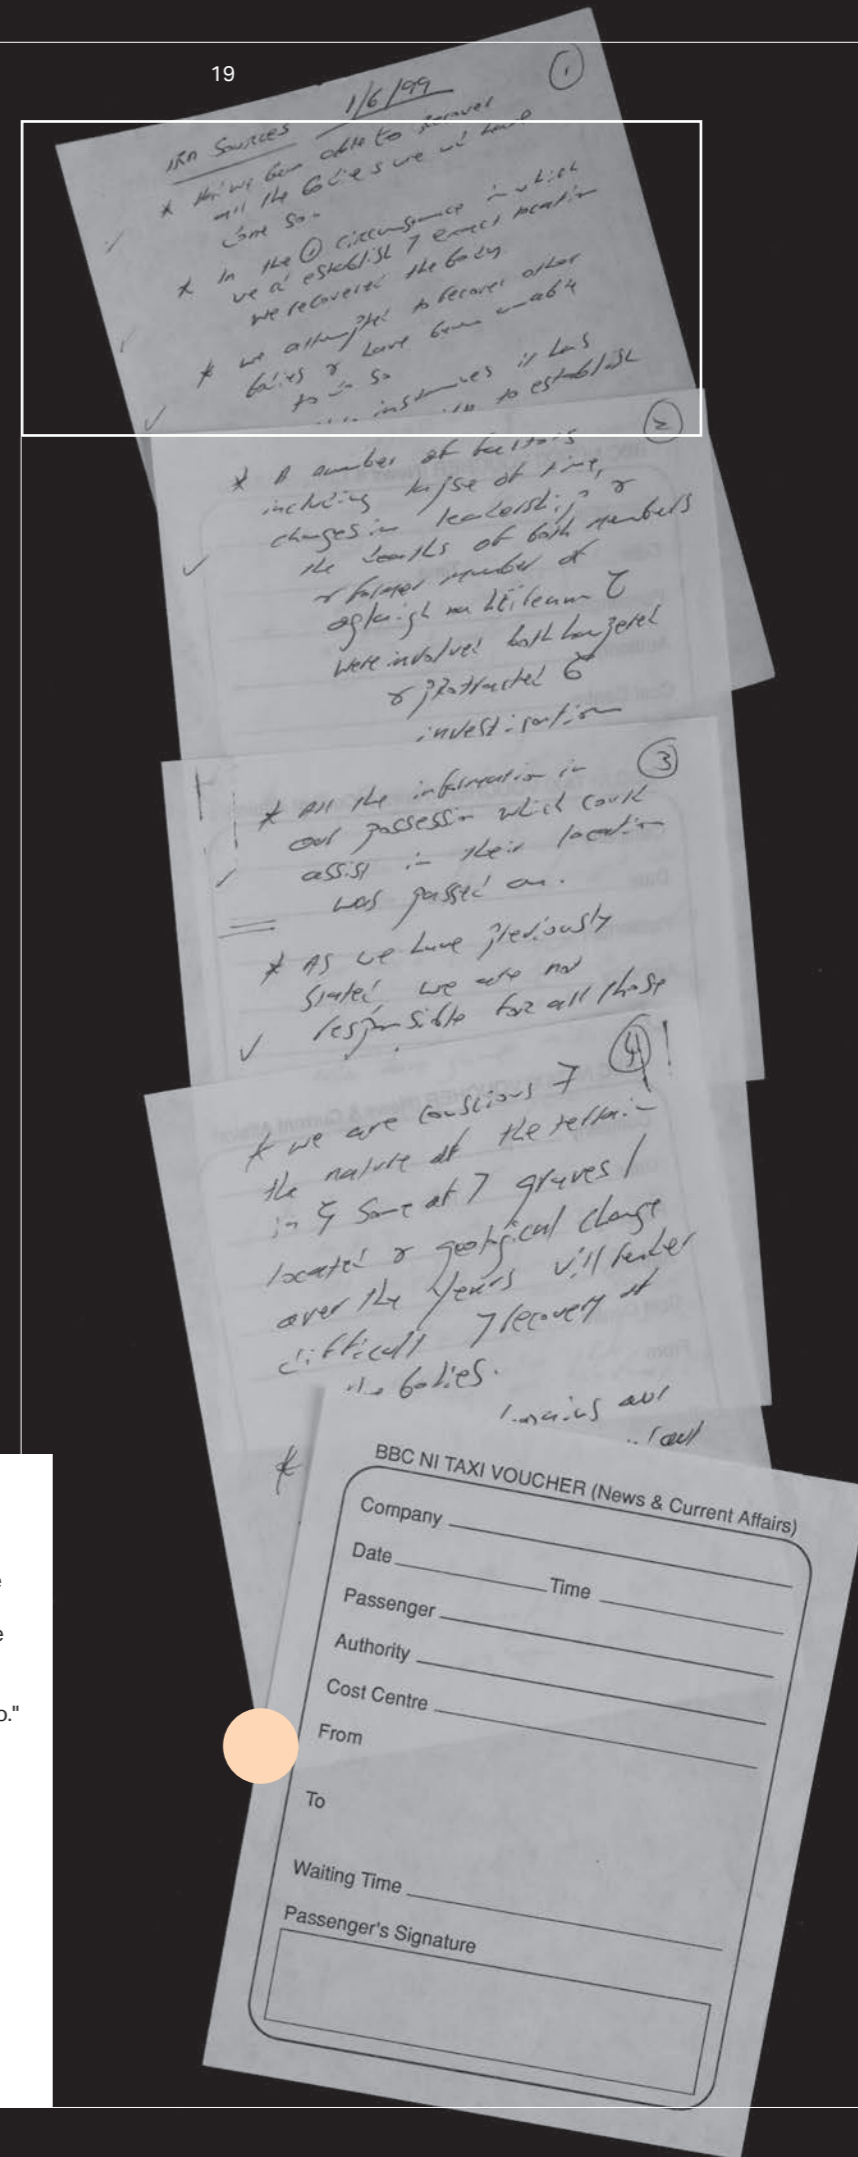 19
1/6/99
①
IRA Sources
* Had we been able to recover
all the bodies we wd have
done so.
* In the ① circumstance in which
we cd establish 7 exact location
we recovered the body.
* we attempted to recover other
bodies & have been unable
to do so
instances it has
to establish
②
* A number of factors
including lapse of time,
changes in leadership, &
the deaths of both members
& former member of
oglaigh na hEireann
were involved both hampered
& protracted
investigation
③
* All the information in
our possession which could
assist in their location
was passed on.
* As we have previously
stated we are not
responsible for all those
④!
* we are conscious 7
the nature of the terrain
in some of 7 graves /
located & geological change
over the years will render
difficult 7 recovery of
the bodies.
our
*
BBC NI TAXI VOUCHER (News & Current Affairs)
Company
Date Time
Passenger
Authority
Cost Centre
From
To
Waiting Time
Passenger's Signature
o."